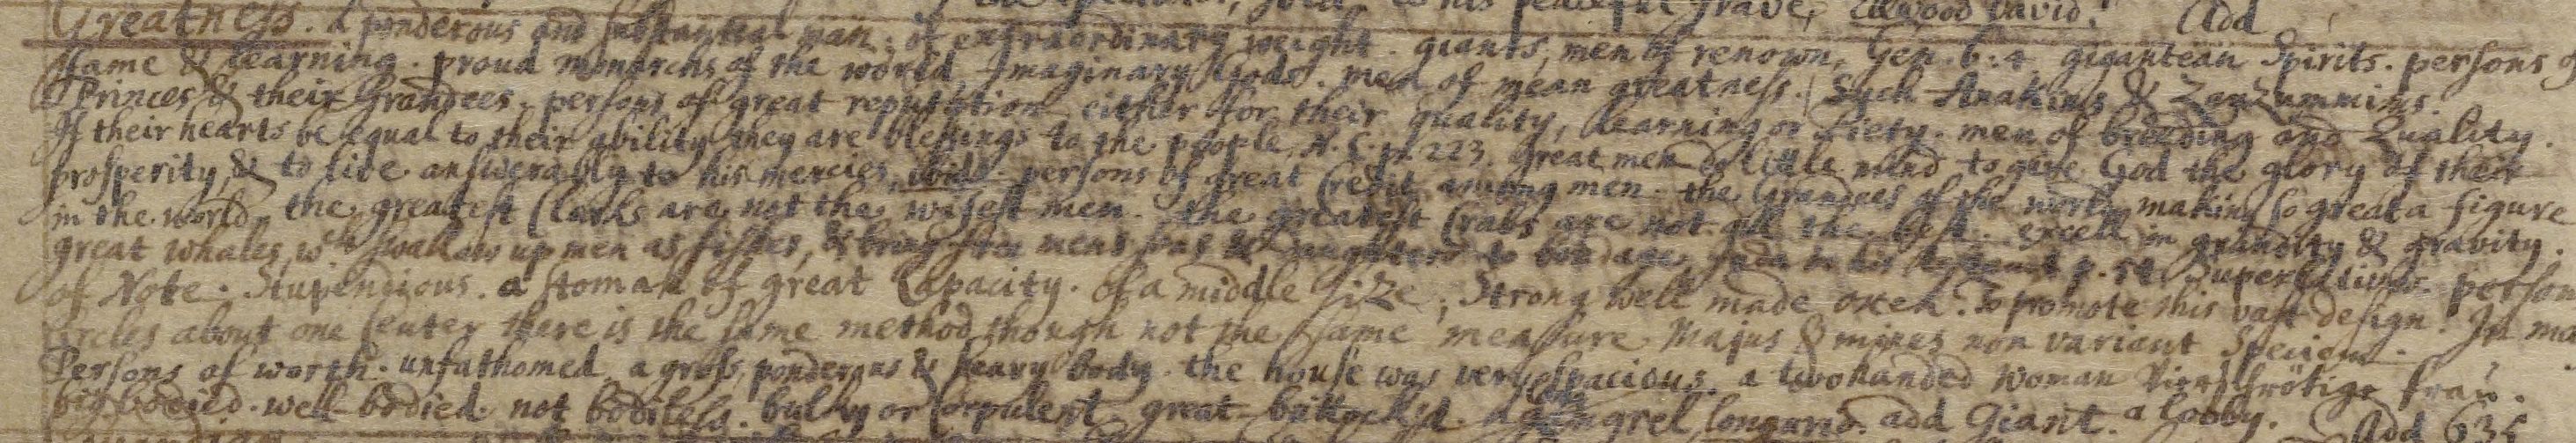 his peaceful grave, Ellwood David. Add
Greatness. a ponderous and substantial man; of extraordinary weight. giants, men of renown, Gen. 6:4 gigantean Spirits. persons of
fame & learning. proud monarchs of the world. Imaginary Gods. men of mean greatness. Such Anakims & Zanzummims.
Princes & their Grandees. persons of great reputation either for their quality, learning or Piety. men of breeding and Quality.
If their hearts be equal to their ability they are blessings to the people, N. C. p. 223. Great men do little mind to give God the glory of their
prosperity, & to live answerably to his mercies, ibid. persons of great Credit among men. the Grandees of the world making so great a figure
in the world. the greatest Clarks are not the wisest men. the greatest Crabs are not all the best. excell in grandity & gravity.
great whales, wch swallow up men as fishes, & bring free mens sons & daughters to bondage p. 54 Superlative. person
of Note. Stupendious. a stomak of great Capacity. of a middle size, strong well made oxen. To promote this vast design. In
circles about one Center there is the same method though not the same measure. Majus & minus non variant Speciem.
Persons of worth. unfathomed. a gross, ponderous & heavy body. the house was very spacious. a twohanded woman frau.
big bodied. well-bodied. not bodiless. bulky or Corpulent. great-buttock'd longurio. add Giant. a looby. Add 635